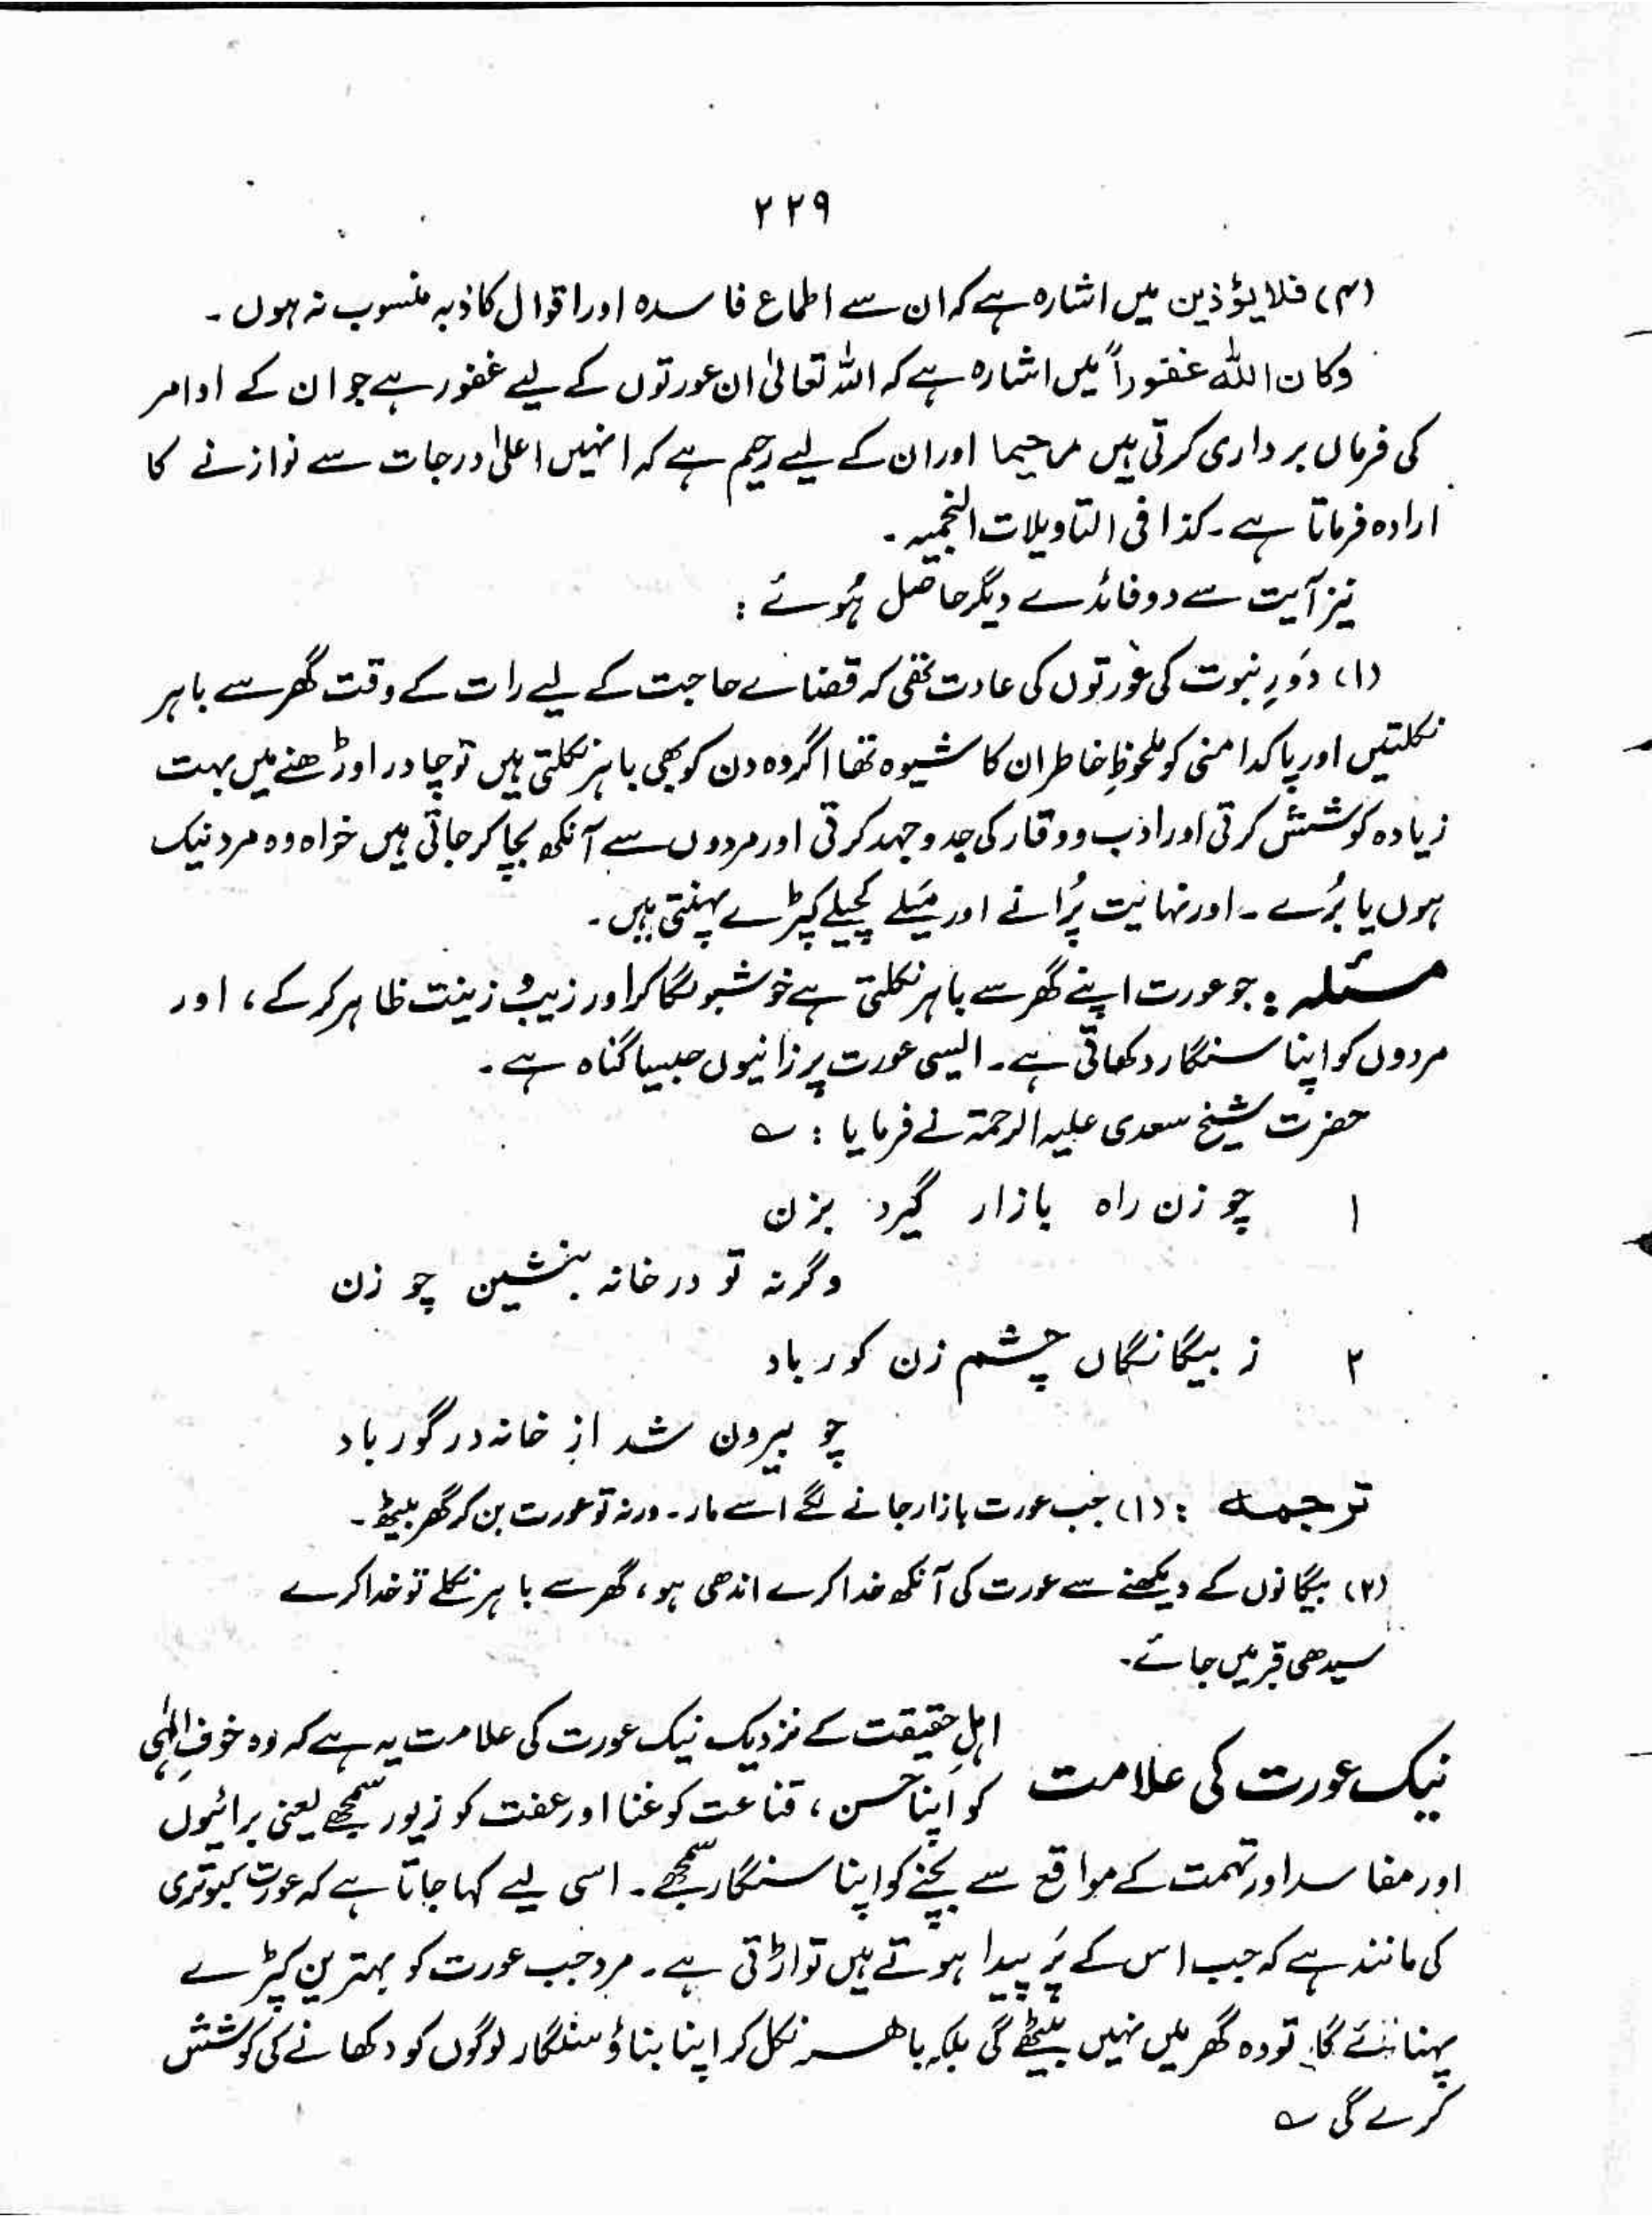 ۲۲۹
(۴) فلا یؤذین میں اشارہ ہے کہ ان سے اطماع فاسدہ اور اقوال کاذبہ منسوب نہ ہوں۔
وکان اللہ غفوراً میں اشارہ ہے کہ اللہ تعالیٰ ان عورتوں کے لیے غفور ہے جو ان کے اوامر
کی فرماں برداری کرتی ہیں رحیما اور ان کے لیے رحیم ہے کہ انہیں اعلیٰ درجات سے نوازنے کا
ارادہ فرماتا ہے۔ کذا فی التاویلات النجمیہ۔
نیز آیت سے دو فائدے دیگر حاصل ہُوئے :
(۱) دَورِ نبوت کی عورتوں کی عادت تھی کہ قضائے حاجت کے لیے رات کے وقت گھر سے باہر
نکلتیں اور پاکدامنی کو ملحوظِ خاطر ان کا شیوہ تھا اگر وہ دن کو بھی باہر نکلتی ہیں تو چادر اوڑھنے میں بہت
زیادہ کوشش کرتی اور ادب و وقار کی جدوجہد کرتی اور مردوں سے آنکھ بچا کر جاتی ہیں خواہ وہ مرد نیک
ہوں یا بُرے۔ اور نہایت پُرانے اور مَیلے کچیلے کپڑے پہنتی ہیں۔
مسئلہ : جو عورت اپنے گھر سے باہر نکلتی ہے خوشبو لگا کر اور زیب و زینت ظاہر کر کے، اور
مردوں کو اپنا سنگار دکھاتی ہے۔ ایسی عورت پر زانیوں جیسا گناہ ہے۔
حضرت شیخ سعدی علیہ الرحمۃ نے فرمایا : ؎
۱ چو زن راہ بازار گیرد بزن
وگرنہ تو در خانہ بنشین چو زن
۲ ز بیگانگاں چشم زن کور باد
چو بیرون شد از خانہ در گور باد
ترجمہ : (۱) جب عورت بازار جانے لگے اسے مار۔ ورنہ تو عورت بن کر گھر بیٹھ۔
(۲) بیگانوں کے دیکھنے سے عورت کی آنکھ خدا کرے اندھی ہو، گھر سے باہر نکلے تو خدا کرے
سیدھی قبر میں جائے۔
نیک عورت کی علامت اہلِ حقیقت کے نزدیک نیک عورت کی علامت یہ ہے کہ وہ خوفِ الٰہی
کو اپنا حسن، قناعت کو غنا اور عفت کو زیور سمجھے یعنی برائیوں
اور مفاسد اور تہمت کے مواقع سے بچنے کو اپنا سنگار سمجھے۔ اسی لیے کہا جاتا ہے کہ عورت کبوتری
کی مانند ہے کہ جب اس کے پَر پیدا ہوتے ہیں تو اڑتی ہے۔ مرد جب عورت کو بہترین کپڑے
پہنائے گا تو وہ گھر میں نہیں بیٹھے گی بلکہ باہر نکل کر اپنا بناؤ سنگار لوگوں کو دکھانے کی کوشش
کرے گی ؎